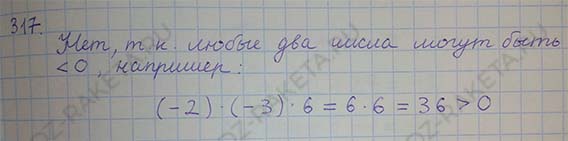 317.
Нет, т.к. любые два числа могут быть
< 0, например:
(-2) · (-3) · 6 = 6 · 6 = 36 > 0